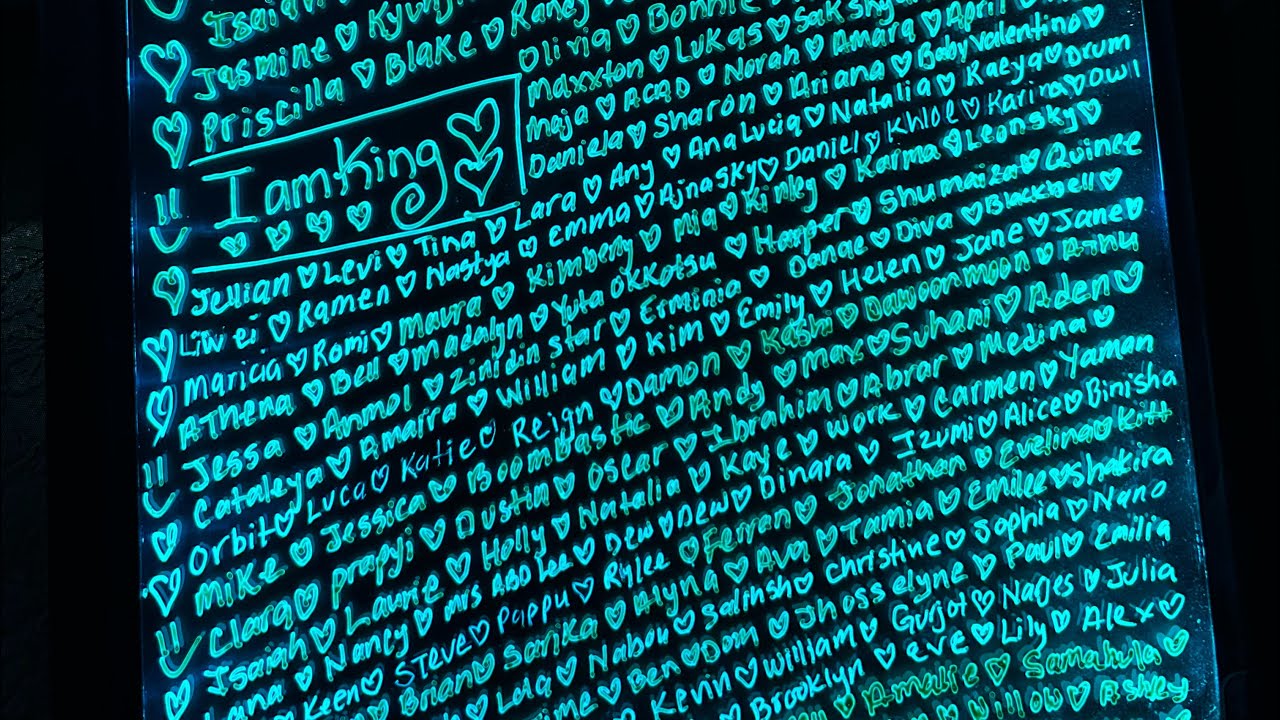 Isaiah ♡
Jasmine ♡
Priscilla ♡ Blake ♡ Randy ♡
Olivia ♡ Bonnie
Maxxton ♡ Lukas ♡
Meja ♡ ACAD ♡ Norah ♡ Amara ♡ April
Daniela ♡ Sharon ♡ Ariana ♡ Baby Valentino ♡
I am King
Jellian ♡ Levi ♡ Tina ♡ Lara ♡ Any ♡ Ana Lucia ♡ Natalia ♡ Kaeya ♡ Drum
Liwei ♡ Ramen ♡ Nastya ♡ Emma ♡ Ajnasky ♡ Daniel ♡ Khloe ♡ Karina ♡ Owl
Maricia ♡ Romi ♡ Maura ♡ Kimberly ♡ Mia ♡ Kinky ♡ Karma ♡ Leonsky ♡
Athena ♡ Bell ♡ Madalyn ♡ Yuta Okkotsu ♡ Harper ♡ Shumaiza ♡ Quincee
Jessa ♡ Anmol ♡ Zinidin star ♡ Erminia ♡ Danae ♡ Diva ♡ Blackbell ♡
Cataleya ♡ Amarra ♡ William ♡ Kim ♡ Emily ♡ Helen ♡ Jane ♡ Jane ♡
Orbit ♡ Luca ♡ Katie ♡ Reign ♡ Damon ♡ Kashi ♡ Dawoonmoon ♡ Annu
Mike ♡ Jessica ♡ Boombastic ♡ Andy ♡ Max ♡ Suhani ♡ Aden ♡
Clara ♡ prapyi ♡ Dustin ♡ Oscar ♡ Ibrahim ♡ Abrar ♡ Medina ♡
Isaiah ♡ Laurie ♡ Holly ♡ Natalia ♡ Kaye ♡ Work ♡ Carmen ♡ Yaman
Lana ♡ Nancy ♡ Mrs ABD Lee ♡ Dew ♡ Dew ♡ Dinara ♡ Izumi ♡ Alice ♡ Binisha
Keen ♡ Steve ♡ Pappu ♡ Rylee ♡ Ferran ♡ Jonathan ♡ Evelina ♡ Kitt
Brian ♡ Sarika ♡ Alyna ♡ Ava ♡ Tamia ♡ Emilee ♡ Shakira
Lola ♡ Nabou ♡ Christine ♡ Sophia ♡ Nano
Ben ♡ Dom ♡ Jhosselyne ♡ Paul ♡ Emilia
Kevin ♡ William ♡ Gurjot ♡ Narjes ♡ Julia
Brooklyn ♡ eve ♡ Lily ♡ Alex ♡
Amalie ♡ Samahula ♡
Willow ♡ Ashley